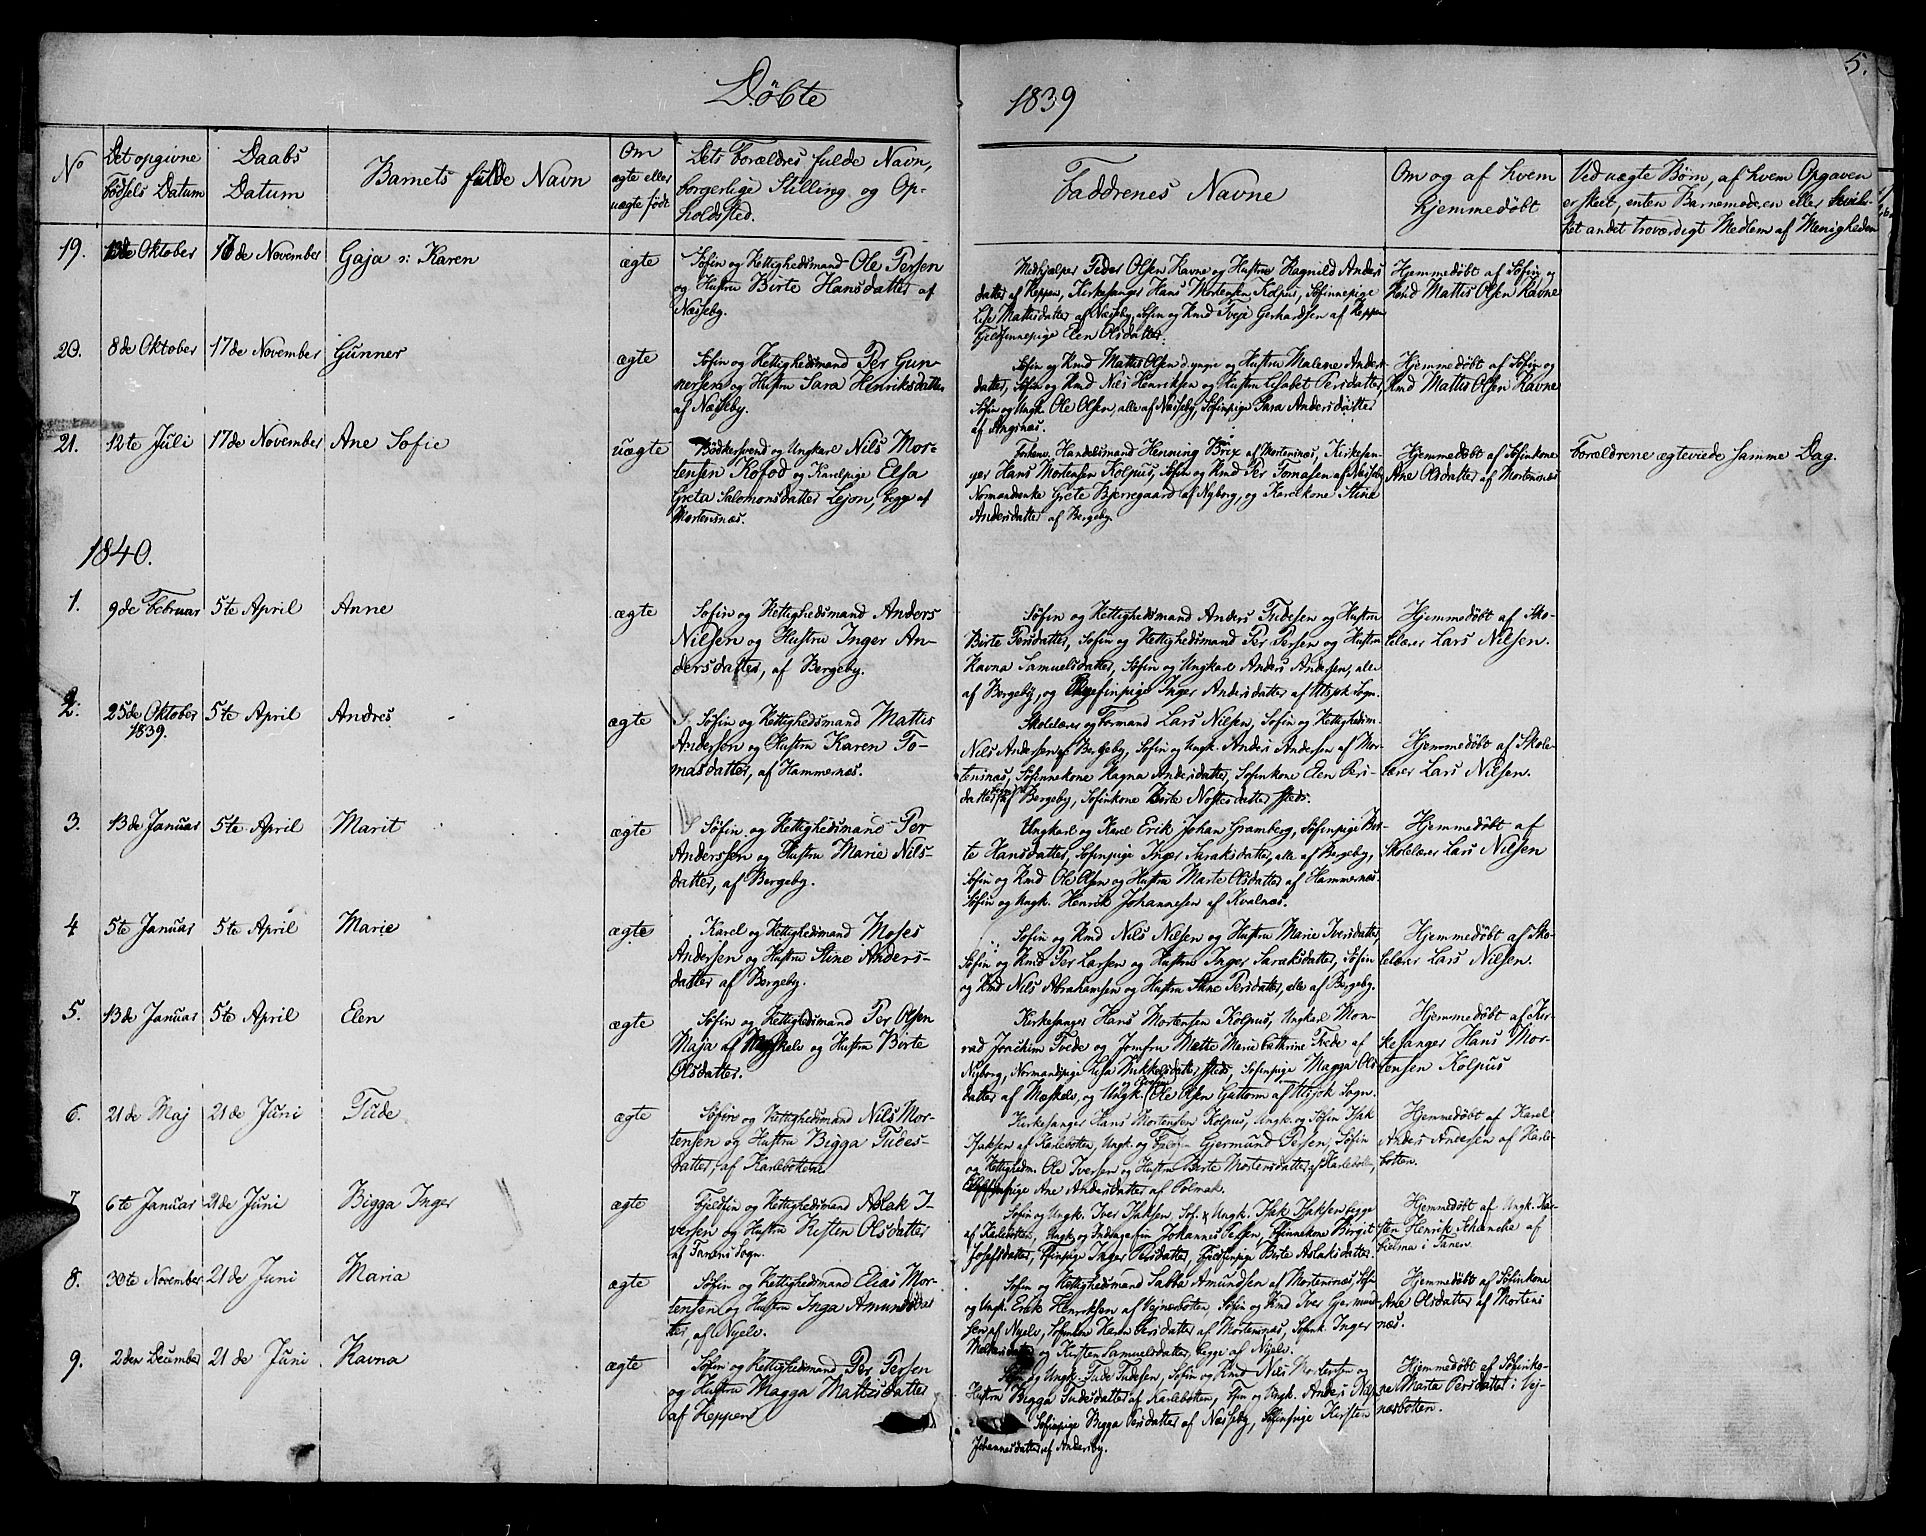 Döbte
1839
5.
No
Det opgivne
Födsels Datum
Daabs
Datum
Barnets fulde Navn
Om
ægte eller
uægte födt
Dets Forældres fulde Navn,
borgerlige Stilling og Op-
holdsted.
Faddrenes Navne
Om og af hvem
hjemmedöbt
Ved uægte Börn, af hvem Opgaven
er skeet, enten Barnemoderen eller
het andet troværdigt Medlem af Menigheden
19.
Oktober
17de November
Gaja o: Karen
ægte
Söfin og Rettighedsmand Ole Persen
og Hustru Birte Hansdatter af
Næseby.
Medhjælper Peder Olsen Ravne og Hustru Ragnild Anders
datter af Reppen, Kirkesanger Hans Mortensen Kolpus, Söfinnepige
Lisa Mattisdatter af Næseby, Söfin og Rmd Gerhardsen af Reppen
Fjeldfinnepige Elen Olsdatter.
Hjemmedöbt af Söfin og
Rmd Mattis Olsen Ravne
20.
8de Oktober
17de November
Gunner
ægte
Söfin og Rettighedsmand Per Gun-
nersen og Hustru Sara Henriksdatter
af Næseby.
Söfin og Rmd Mattis Olsen d. yngre og Hustru Malene Anders-
datter, Söfin og Rmd Nils Henriksen og Hustru Lisabet Persdatter,
Söfin og Ungk. Ole Olsen, alle af Næseby, Söfinpige Sara Andersdatter
af Angsnæs.
Hjemmedöbt af Söfin og
Rmd Mattis Olsen Ravne
21.
12te Juli
17de November
Ane Sofie
uægte
Bödkersvend og Ungkarl Nils Mor-
tensen Kofod og Karelpige Elsa
Greta Salomonsdatter Lejon, begge af
Mortensnæs.
Forhenv. Handelsmand Henning Brix af Mortensnæs, Kirkesan-
ger Hans Mortensen Kolpus, Söfin og Rmd Per Tomasen af Næseby
Normandenke Grete Bjerregaard af Nyborg, og Karelkone Stine
Andersdatter af Bergeby.
Hjemmedöbt af Söfinkone
Ane Olsdatter af Mortensnæs
Forældrene ægteviede samme Dag.
1840.
1.
9de Februar
5te April
Anne
ægte
Söfin og Rettighedsmand Anders
Nilsen og Hustru Inger An-
dersdatter, af Bergeby.
Söfin og Rettighedsmand Anders Tudesen og Hustru
Birte Persdatter, Söfin og Rettighedsmand Per Persen og Hustru
Ravna Samuelsdatter, Söfin og Ungkarl Anders Andersen, alle
af Bergeby, og Inger Andersdatter af Utsjok Sogn.
Hjemmedöbt af Sko-
lelærer Lars Nilsen.
2.
25de Oktober
1839.
5te April
Andres
ægte
Söfin og Rettighedsmand Mattis
Andersen og Hustru Karen To-
masdatter, af Hammernæs.
Skolelærer og Formand Lars Nilsen, Söfin og Rettighedsm.
Nils Andersen, Bergeby, Söfin og Ungk. Anders Andersen af Mor-
tensnæs, Söfinnekone Ragna Andersdatter, Söfinkone Elen Pers-
datter af Bergeby, Söfinkone Birte Nilsdatter steds.
Hjemmedöbt af Skole-
lærer Lars Nilsen.
3.
13de Januar
5te April
Marit
ægte
Söfin og Rettighedsmand Per
Anderssen og Hustru Marie Nils-
datter, af Bergeby.
Ungkarl og Karel Erik Johan Gramberg, Söfinpige Bir-
te Hansdatter, Söfinpige Inger Saraksdatter, alle af Bergeby,
Söfin og Rmd Ole Olsen og Hustru Marte Olsdatter af Hammernæs.
Söfin og Ungk. Henrik Johannesen af Kvalnæs.
Hjemmedöbt af
Skolelærer Lars Nilsen
4
5te Januar
5te April
Marie
ægte
Karel og Rettighedsmand Moses
Andersen og Hustru Stine Anders-
datter af Bergeby.
Söfin og Rmd Nils Nilsen og Hustru Marie Iversdatter,
Söfin og Rmd Per Larsen og Hustru Inger Saraksdatter, Söfin
og Rmd Nils Abrahamsen og Hustru Stine Persdatter, alle af Bergeby.
Hjemmedöbt af Sko-
lelærer Lars Nilsen.
5.
13de Januar
5te April
Elen
ægte
Söfin og Rettighedsmand Per Olsen
Maja af Mæskelv og Hustru Birte
Olsdatter.
Kirkesanger Hans Mortensen Kolpus, Ungkarl Kon-
rad Joachim Tvede og Jomfru Mette Marie Cathrine Tvede af
Nyborg, Normandspige Lisa Mikkelsdatter steds, Söfinpige Magga Ols
datter af Mæskelv, og Ungk. Ole Olsen Guttorm af Utsjok Sogn.
Hjemmedöbt af Kir-
kesanger Hans Mor-
tensen Kolpus
6.
21de Maj
21de Juni
Tude
ægte
Söfin og Rettighedsmand Nils Mor-
tensen og Hustru Bigga Tudes-
datter, af Karlebotten
Kirkesanger Hans Mortensen Kolpus, Ungk. og Söfin Isak
Isaksen af Karlebotten, Ungk. og Gjermund Persen, Söfin
og Rettighedm. Ole Iversen og Hustru Birte Mortensdatter, af Karlebotten,
Ane Andersdatter af Polmak.
Hjemmedöbt af Karel
Anders Andersen af Karle-
botten.
7
6te Januar
21de Juni
Bigga Inger
ægte
Fjeldfin og Rettighedsmand Aslak I-
versen og Hustru Risten Olsdatter
af Tanens Sogn.
Söfin og Ungk. Iver Isaksen, Söf. & Ungk. Isak Isaksen begge
af Karlebotten, Ungk. og Johannes Persen, Finnekone Birgit
Josefsdatter, Finpige Inger Persdatter, Fjeldfinpige Birte Aslaksdatter.
Hjemmedöbt af Ungk. Kar-
sten Henrik Schancke af
i Tanen.
8.
30te November
21de Juni
Maria
ægte
Söfin og Rettighedsmand Elias Mor-
tensen og Hustru Inga Amundsdat-
ter, af Nyelv.
Söfin og Rettighedsmand Sabba Amundsen af Mortensnæs, Söf.
og Ungk. Erik Henriksen af Vejnæsbotten, Söfin og Rmd Iver Gjermund-
sen af Nyelv, Söfinkone Karen Persdatter af Mortensnæs, Söfink. Inger
Mattisdatter og Kirsten Samuelsdatter, begge af Nyelv.
Hjemmedöbt af Söfinkone
Ane Olsdatter af Mortens
næs.
9.
2den December
21de Juni
Ravna
ægte
Söfin og Rettighedsmand Per Persen
og Hustru Magga Mattisdatter
af Reppen
og Ungk. Tude Tudesen, Söfin og Rmd Nils Mortensen og
Hustru Bigga Tudesdatter af Karlebotten, Fin og Ungk. Anders Nilsen
Söfinpige Bigga Persdatter af Næseby, Söfinpige Kirsten
Johannesdatter af Andersby.
Hjemmedöbt af Söfinko-
ne Marta Persdatter i Vej-
næsbotten.